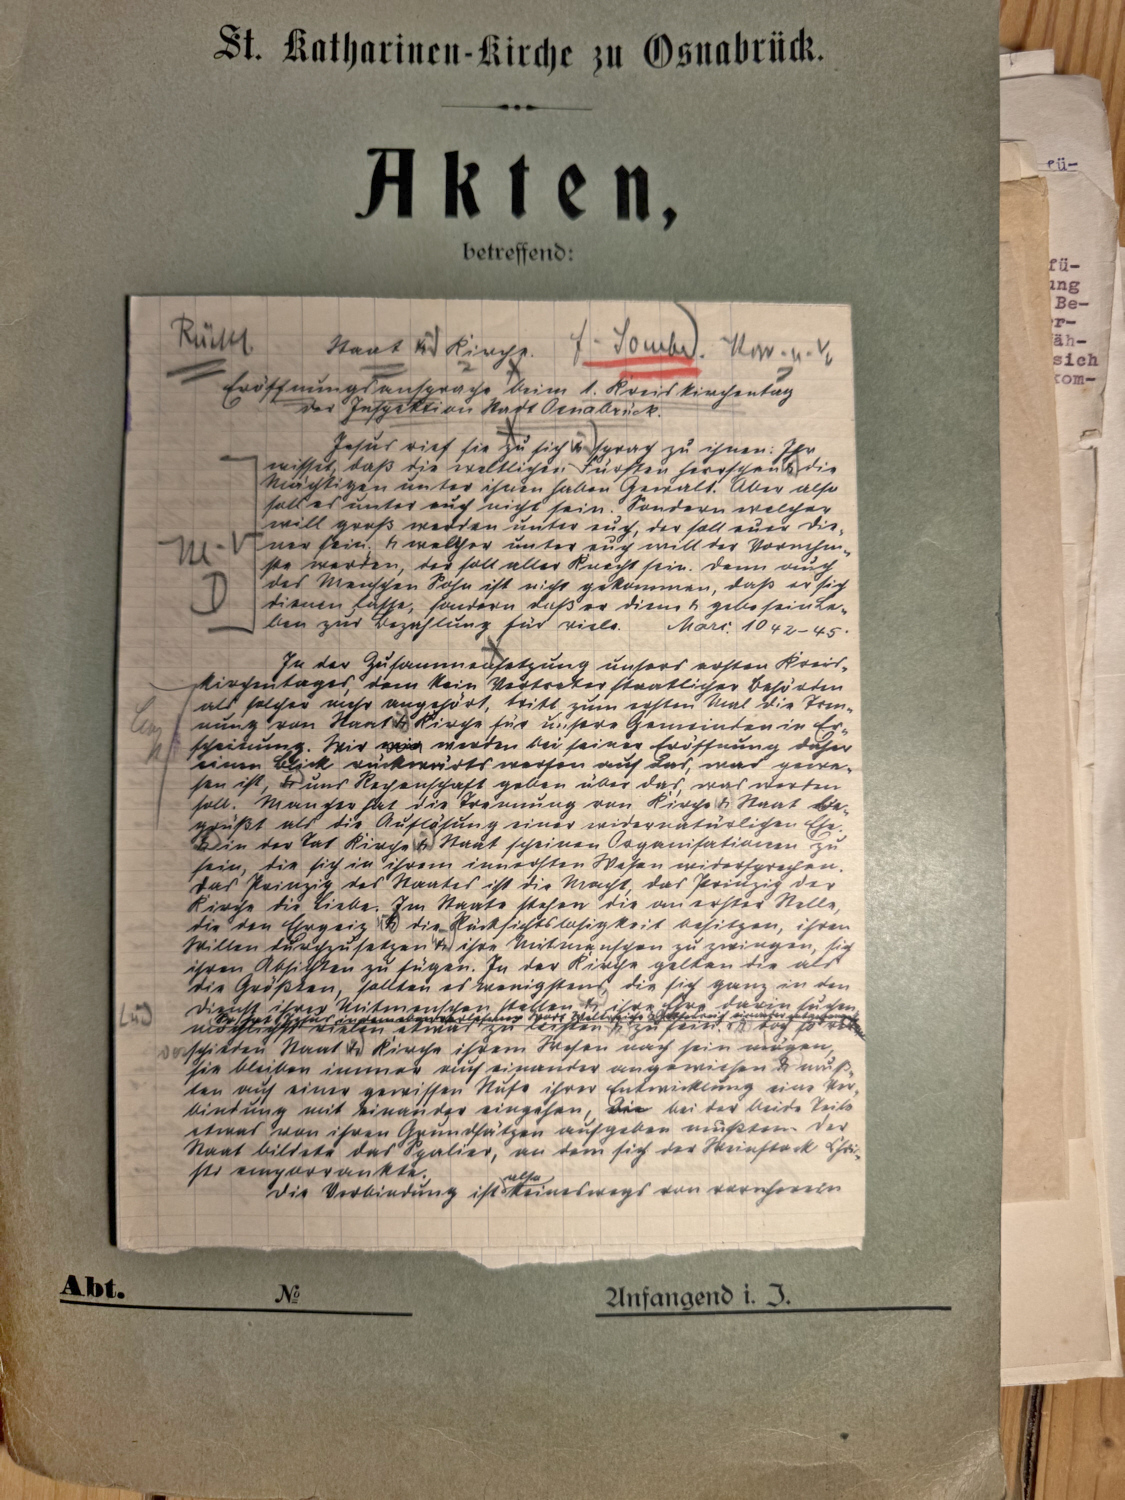 St. Katharinen-Kirche zu Osnabrück.
Akten,
betreffend:
Rückl.
Staat u. Kirche.
Eröffnungsansprache beim 1. Kreiskirchentag
der Inspektion Stadt Osnabrück.
Jesus rief sie zu sich u. sprach zu ihnen: Ihr
wisset, daß die weltlichen Fürsten herrschen u. die
Mächtigen unter ihnen haben Gewalt. Aber also
soll es unter euch nicht sein. Sondern welcher
will groß werden unter euch, der soll euer Die-
ner sein. u. welcher unter euch will der Vornehm-
ste werden, der soll aller Knecht sein. Denn auch
des Menschen Sohn ist nicht gekommen, daß er sich
dienen lasse, sondern daß er diene u. gebe sein Le-
ben zur Bezahlung für viele. Marc. 10 42-45.
M.-V
D
In der Zusammensetzung unsers ersten Kreis-
kirchentages, dem kein Vertreter staatlicher Behörden
als solcher mehr angehört, tritt zum ersten Mal die Tren-
nung von Staat u. Kirche für unsere Gemeinden in Er-
scheinung. Wir werden bei seiner Eröffnung daher
einen Blick rückwärts werfen auf das, was gewe-
sen ist, u. uns Rechenschaft geben über das, was werden
soll. Mancher hat die Trennung von Kirche u. Staat be-
grüßt als die Auflösung einer widernatürlichen Ehe.
u. in der Tat Kirche u. Staat scheinen Organisationen zu
sein, die sich in ihrem innersten Wesen widersprechen.
Das Prinzip des Staates ist die Macht, das Prinzip der
Kirche die Liebe. Im Staate stehen die an erster Stelle,
die den Ehrgeiz u. die Rücksichtslosigkeit besitzen, ihren
Willen durchzusetzen u. ihre Mitmenschen zu zwingen, sich
ihren Absichten zu fügen. In der Kirche gelten die als
die Größten, sollten es wenigstens, die sich ganz in den
Dienst ihrer Mitmenschen stellen u. ihre Ehre darin suchen
möglichst vielen etwas zu leisten u. zu sein. doch so ver-
schieden Staat u. Kirche ihrem Wesen nach sein mögen,
sie bleiben immer auf einander angewiesen u. muß-
ten auf einer gewissen Stufe ihrer Entwicklung eine Ver-
bindung mit einander eingehen, bei der beide Teile
etwas von ihren Grundsätzen aufgeben mußten. Der
Staat bildete das Spalier, an dem sich der Weinstock Chri-
sti emporrankte.
Die Verbindung ist also keineswegs von vornherein
Abt.
№
Anfangend i. J.
fü-
fü-
ung
Be-
er-
äh-
sich
kom-